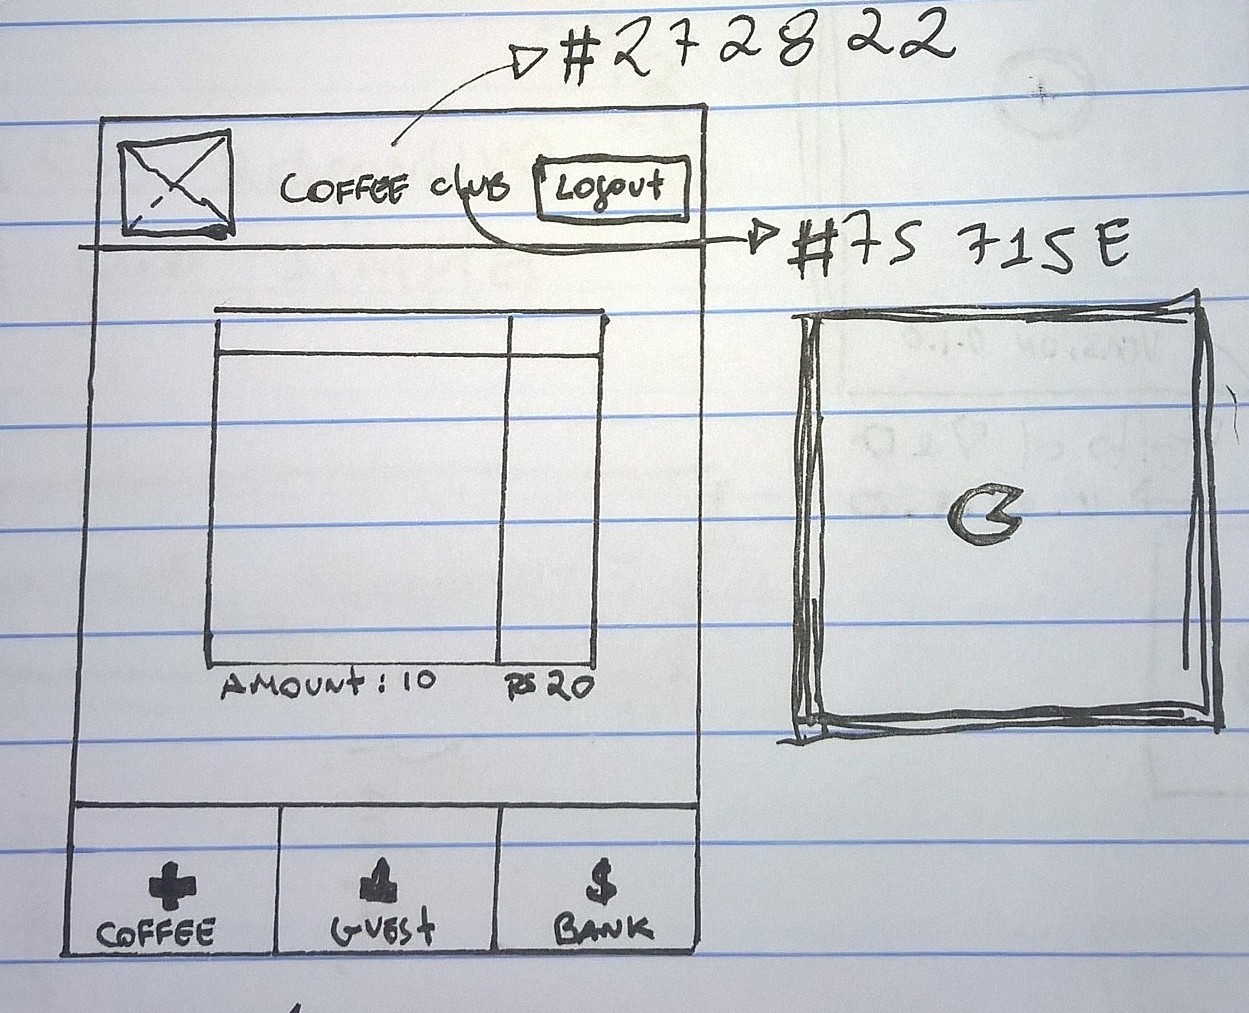 #272822
COFFEE club Logout
#75 715E
AMOUNT: 10 R$ 20
COFFEE GUEST $ BANK